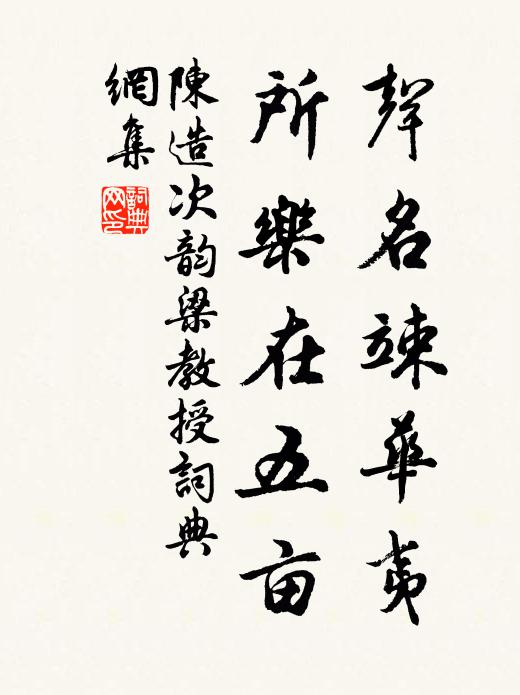 聲名竦華夷
所樂在五亩
陳造次韵梁教授詞典
網集
詞典网印